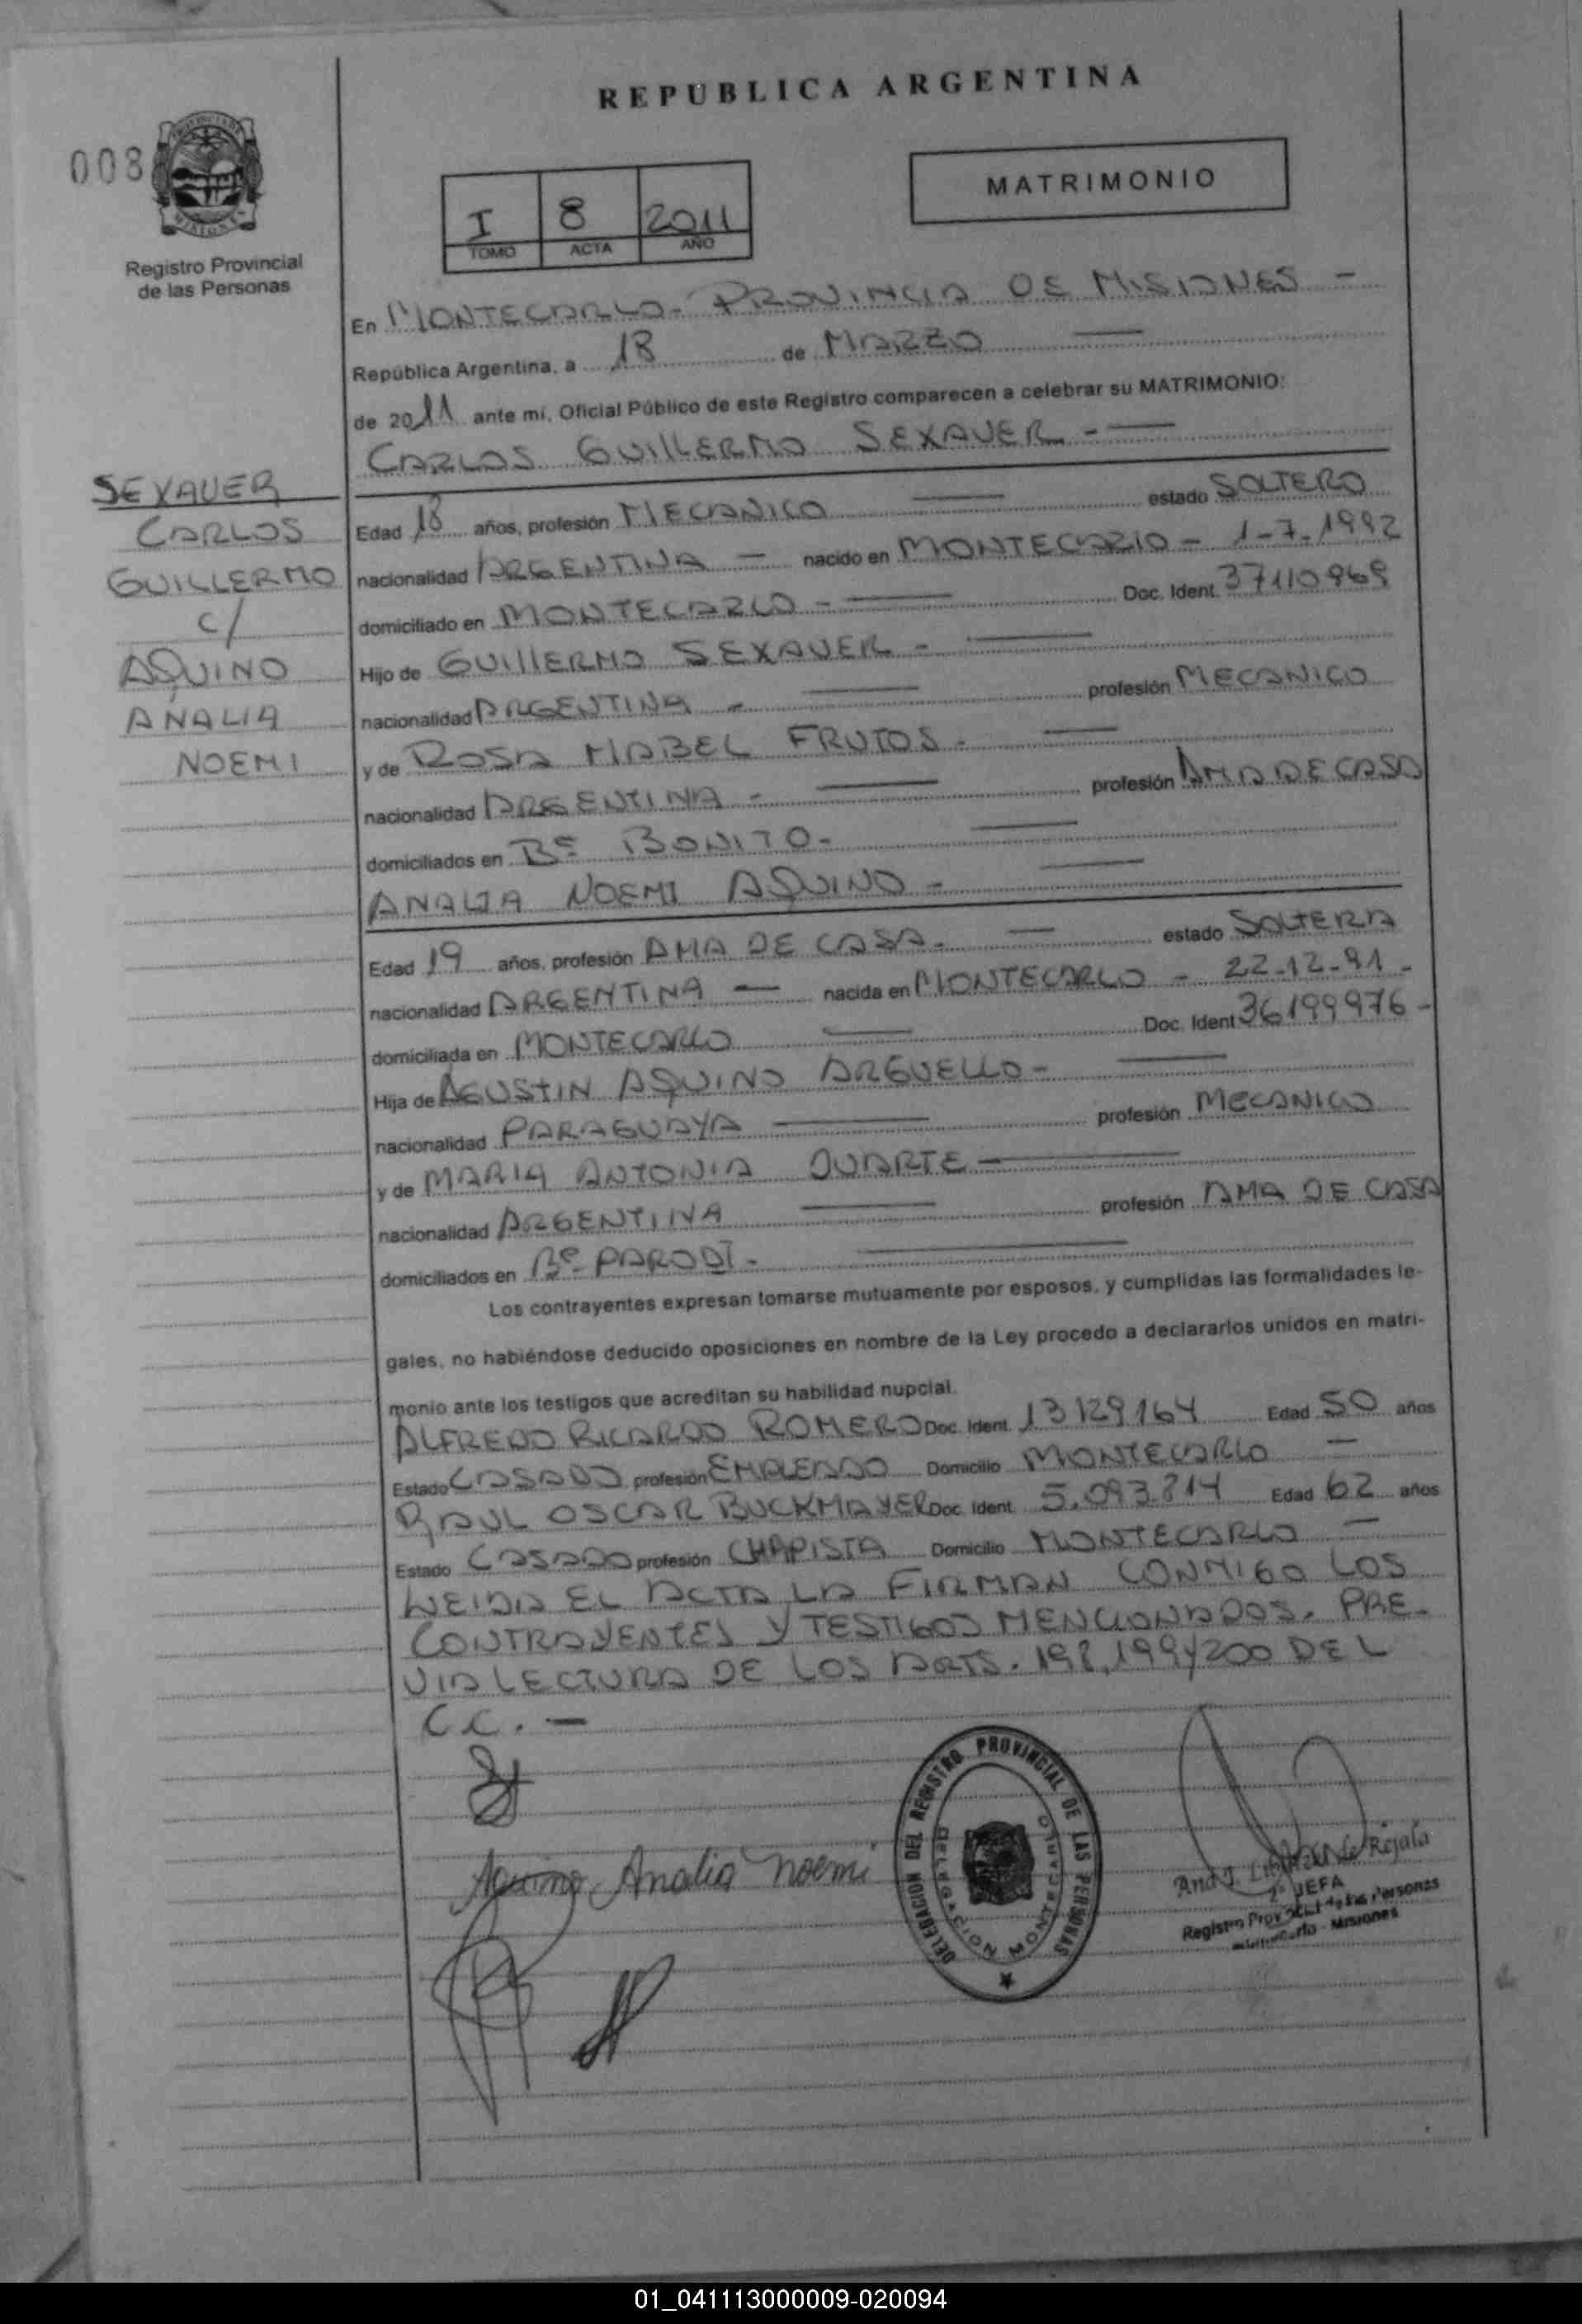 REPUBLICA ARGENTINA
008
MATRIMONIO
I 8 2011
TOMO ACTA AÑO
Registro Provincial
de las Personas
En MONTECARLO - PROVINCIA DE MISIONES -
República Argentina, a 18 de MARZO
de 2011 ante mí, Oficial Público de este Registro comparecen a celebrar su MATRIMONIO:
CARLOS GUILLERMO SEXAUER -
SEXAUER
CARLOS
GUILLERMO
c/
AQUINO
ANALIA
NOEMI
Edad 18 años, profesión MECANICO estado SOLTERO
nacionalidad ARGENTINA - nacido en MONTECARLO - 1-7-1992
domiciliado en MONTECARLO - Doc. Ident. 37110969
Hijo de GUILLERMO SEXAUER -
nacionalidad ARGENTINA - profesión MECANICO
y de ROSA MABEL FRUTOS -
nacionalidad ARGENTINA - profesión AMA DE CASA
domiciliados en Bº BONITO -
ANALIA NOEMI AQUINO -
Edad 19 años, profesión AMA DE CASA - estado SOLTERA
nacionalidad ARGENTINA - nacida en MONTECARLO - 22-12-91 -
domiciliada en MONTECARLO Doc. Ident 36199976 -
Hija de AGUSTIN AQUINO ARGUELLO -
nacionalidad PARAGUAYA profesión MECANICO
y de MARIA ANTONIA DUARTE
nacionalidad ARGENTINA profesión AMA DE CASA
domiciliados en Bº PARODI -
Los contrayentes expresan tomarse mutuamente por esposos, y cumplidas las formalidades le-
gales, no habiéndose deducido oposiciones en nombre de la Ley procedo a declararlos unidos en matri-
monio ante los testigos que acreditan su habilidad nupcial.
ALFREDO RICARDO ROMERO Doc. Ident. 13129164 Edad 50 años
Estado CASADO profesión EMPLEADO Domicilio MONTECARLO -
RAUL OSCAR BUCKMAYER Doc. Ident. 5.093.814 Edad 62 años
Estado CASADO profesión CHAPISTA Domicilio MONTECARLO -
LEIDA EL ACTA LA FIRMAN CONMIGO LOS
CONTRAYENTES Y TESTIGOS MENCIONADOS. PRE-
VIA LECTURA DE LOS ARTS. 198, 199 y 200 DEL
C.C. -
DELEGACION DEL REGISTRO PROVINCIAL DE LAS PERSONAS
DELEGACION MONTECARLO
Aquino Analia Noemi
Ana de Rejala
JEFA
Registro Provincial de las Personas
Misiones
01_041113000009-020094